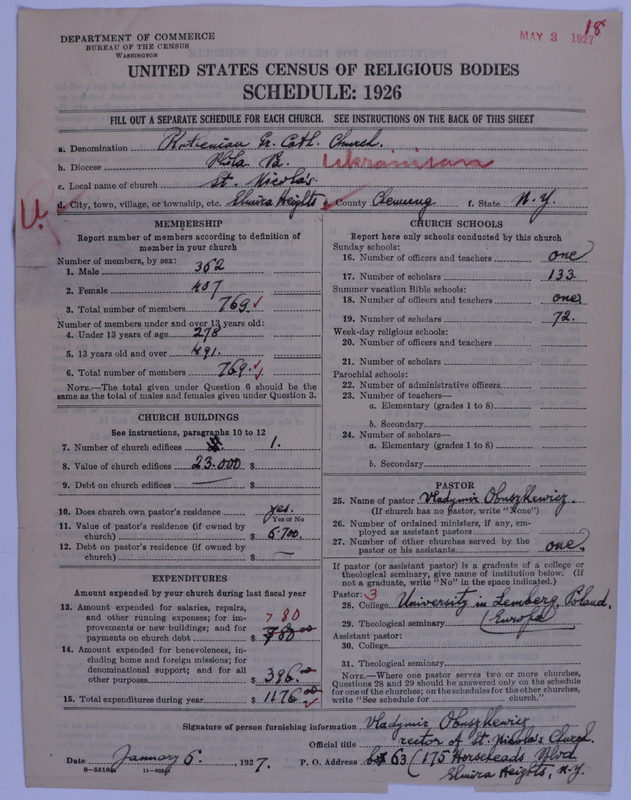 18
MAY 3 1927
DEPARTMENT OF COMMERCE
BUREAU OF THE CENSUS
WASHINGTON
UNITED STATES CENSUS OF RELIGIOUS BODIES
SCHEDULE: 1926
FILL OUT A SEPARATE SCHEDULE FOR EACH CHURCH. SEE INSTRUCTIONS ON THE BACK OF THIS SHEET
a. Denomination Ruthenian Gr. Cath. Church.
b. Diocese Phila. Pa. Ukrainian
c. Local name of church St. Nicolas.
U.
d. City, town, village, or township, etc. Elmira Heights e. County Chemung f. State N.Y.
MEMBERSHIP
Report number of members according to definition of
member in your church
Number of members, by sex:
1. Male 362
2. Female 407
3. Total number of members 769
Number of members under and over 13 years old:
4. Under 13 years of age 278
5. 13 years old and over 491.
6. Total number of members 769.
NOTE.—The total given under Question 6 should be the
same as the total of males and females given under Question 3.
CHURCH BUILDINGS
See instructions, paragraphs 10 to 12
7. Number of church edifices 1.
8. Value of church edifices 23.000 $
9. Debt on church edifices — $
10. Does church own pastor's residence yes.
Yes or No
11. Value of pastor's residence (if owned by
church) $ 6700.
12. Debt on pastor's residence (if owned by
church) $ —
EXPENDITURES
Amount expended by your church during last fiscal year
13. Amount expended for salaries, repairs,
and other running expenses; for im-
provements or new buildings; and for
payments on church debt $ 780
14. Amount expended for benevolences, in-
cluding home and foreign missions; for
denominational support; and for all
other purposes $ 396.00
15. Total expenditures during year $ 1176.00
CHURCH SCHOOLS
Report here only schools conducted by this church
Sunday schools:
16. Number of officers and teachers one
17. Number of scholars 133.
Summer vacation Bible schools:
18. Number of officers and teachers one
19. Number of scholars 72.
Week-day religious schools:
20. Number of officers and teachers
21. Number of scholars
Parochial schools:
22. Number of administrative officers
23. Number of teachers—
a. Elementary (grades 1 to 8)
b. Secondary
24. Number of scholars—
a. Elementary (grades 1 to 8)
b. Secondary
PASTOR
25. Name of pastor Vladymir Obuszkewicz.
(If church has no pastor, write "None")
26. Number of ordained ministers, if any, em-
ployed as assistant pastors
27. Number of other churches served by the
pastor or his assistants one.
If pastor (or assistant pastor) is a graduate of a college or
theological seminary, give name of institution below. (If
not a graduate, write "No" in the space indicated.)
Pastor: 3
28. College University in Lemberg, Poland.
29. Theological seminary (Europa)
Assistant pastor:
30. College
31. Theological seminary
NOTE.—Where one pastor serves two or more churches,
Questions 28 and 29 should be answered only on the schedule
for one of the churches; on the schedules for the other churches,
write "See schedule for church."
Signature of person furnishing information Vladymir Obuszkewicz
Official title rector of St. Nicholas Church.
Date January 6. 1927. P. O. Address box 63 (175 Horseheads Blvd
Elmira Heights, N.Y.